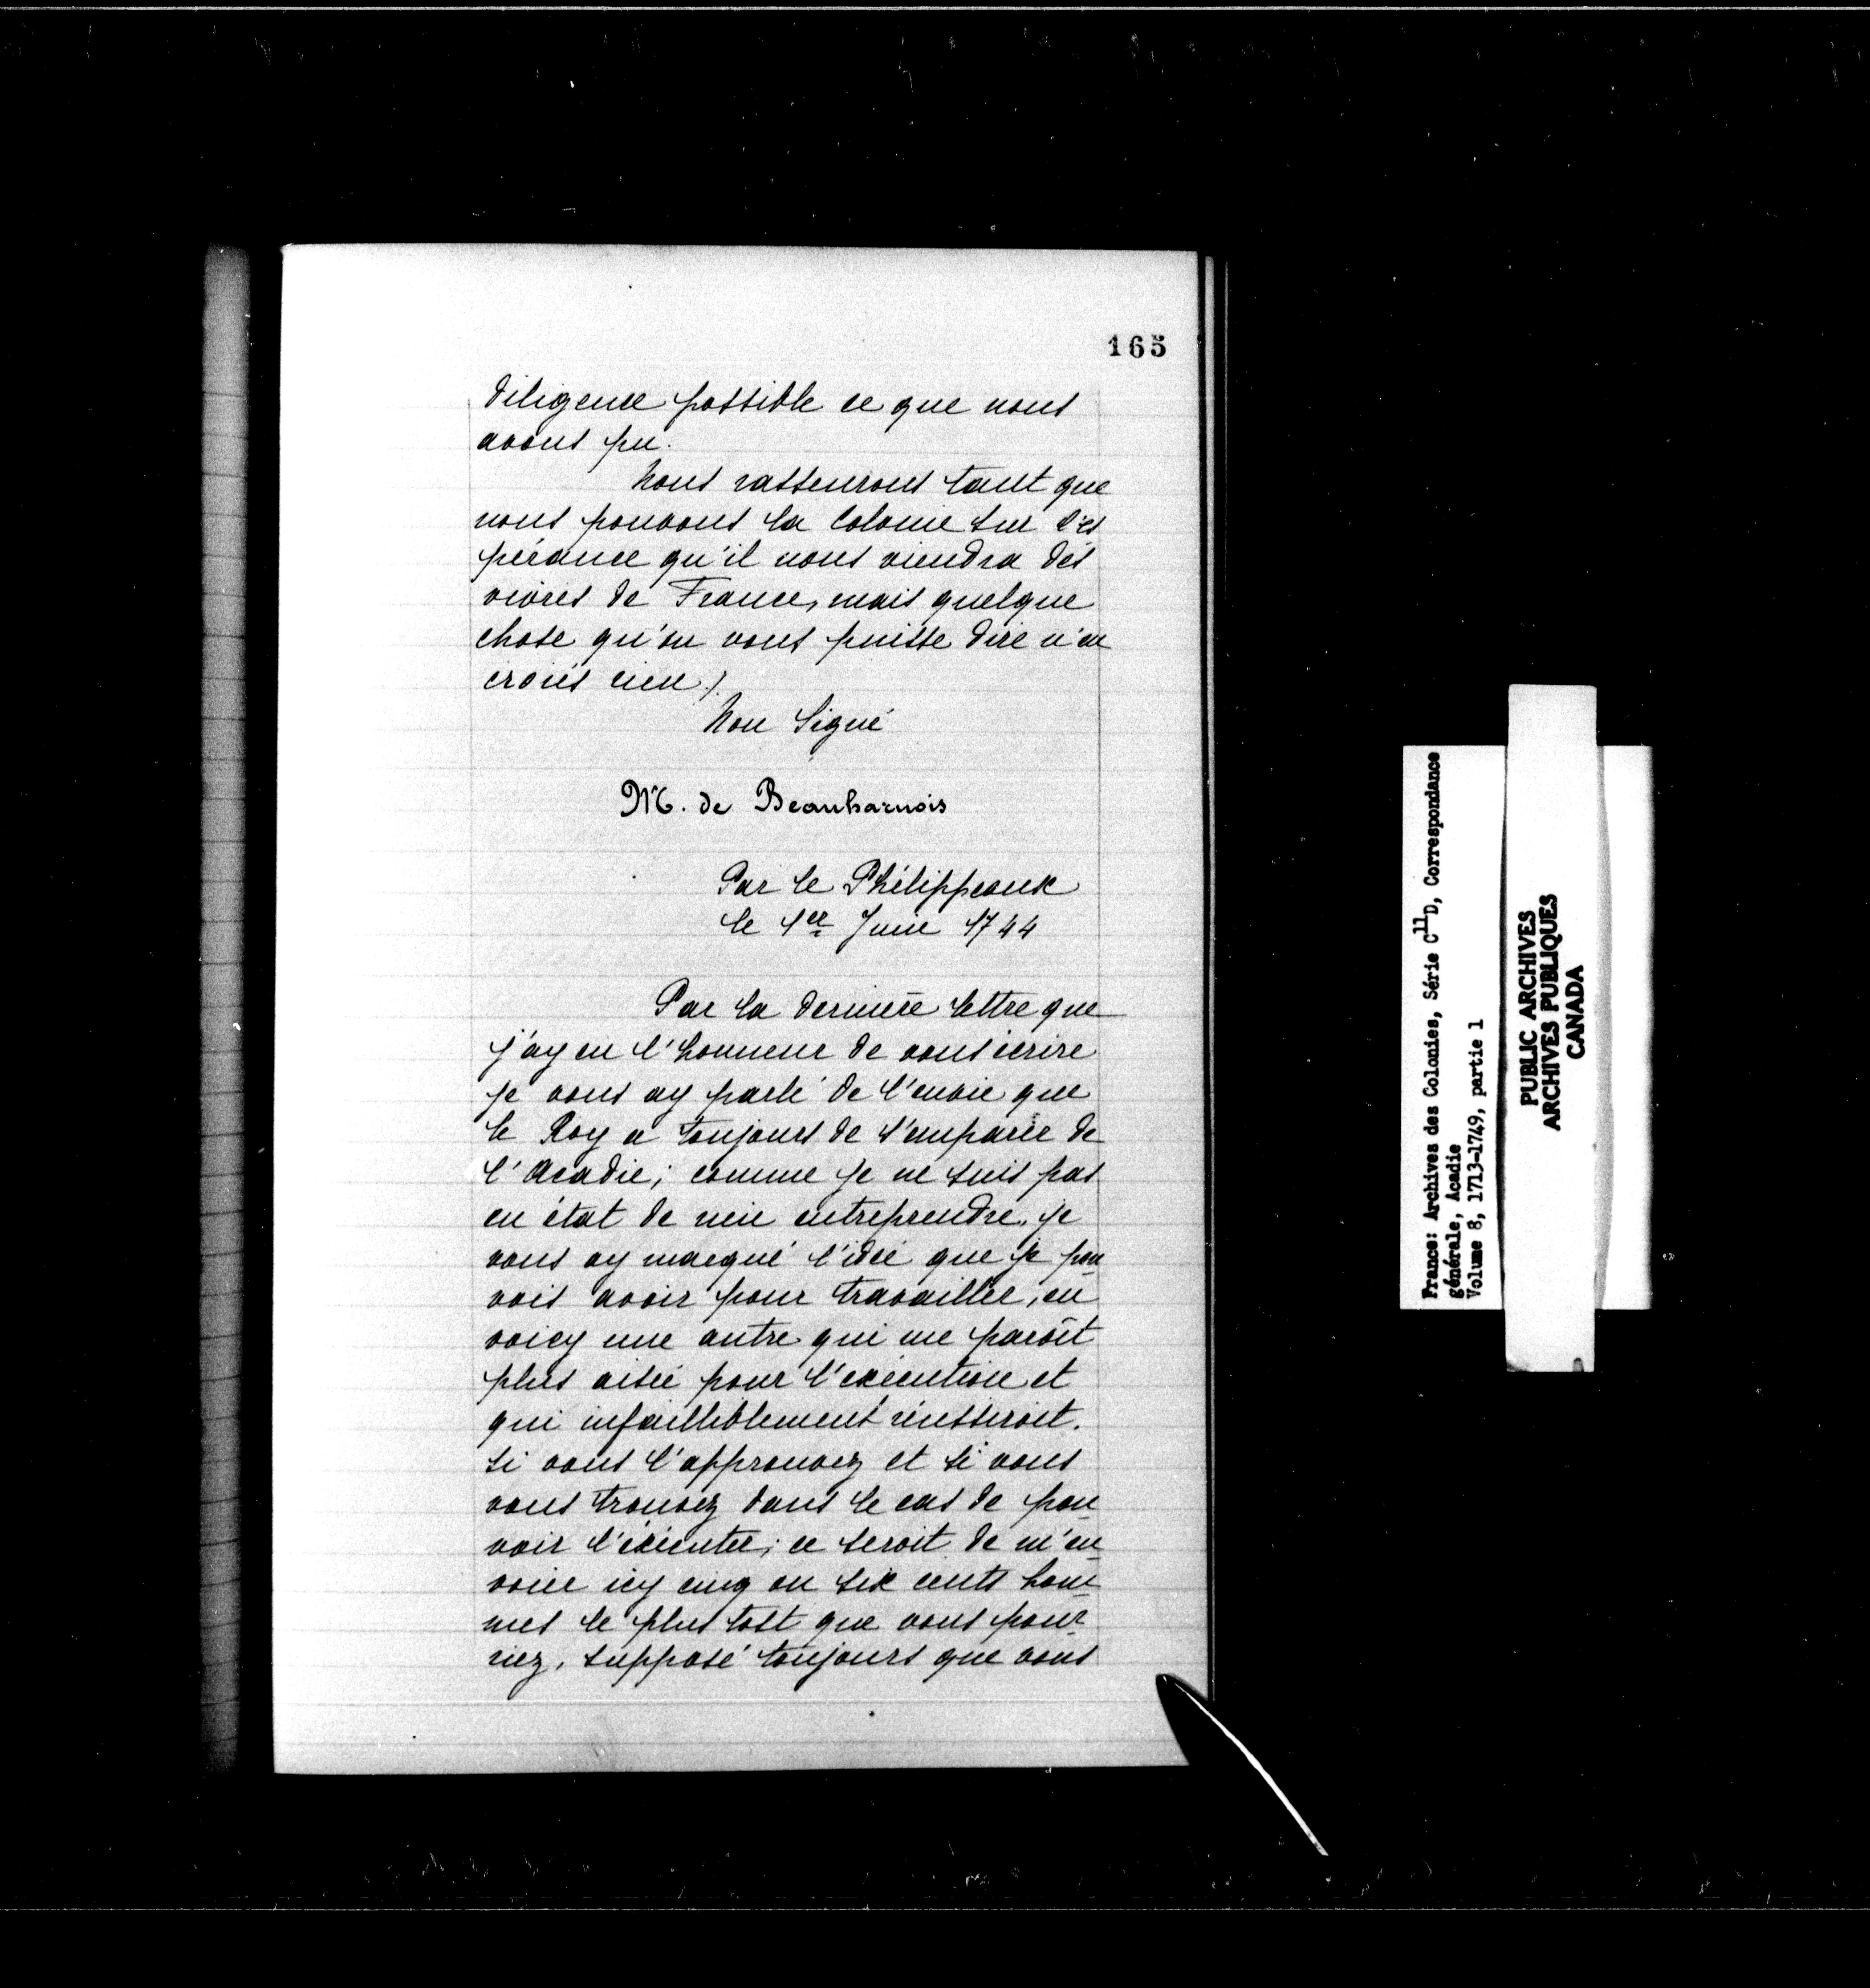 165
diligence possible ce que nous
avons pu.
Nous rassurons tant que
nous pouvons la Colonie sur l'es
pérance qu'il nous viendra des
vivres de France, mais quelque
chose qu'on vous puisse dire n'en
croiés rien /.
Non Signé
M. de Beauharnois
Par le Phélippeaux
le 1er Juin 1744
Par la dernière lettre que
j'ay eu l'honneur de vous écrire
je vous ay parlé de l'envie que
le Roy a toujours de s'emparer de
l'Acadie; comme je ne suis pas
en état de rien entreprendre, je
vous ay marqué l'idée que je pou
vois avoir pour travailler, en
voicy une autre qui me paroît
plus aisée pour l'exécution et
qui infailliblement réussiroit.
Si vous l'approuvez et si vous
vous trouvez dans le cas de pou
voir l'éxécuter; ce seroit de m'en
voier icy cinq ou six cents hom
mes le plus tost que vous pour
riez, supposé toujours que vous
France: Archives des Colonies, Série C11D, Correspondance
générale, Acadie
Volume 8, 1713-1749, partie 1
PUBLIC ARCHIVES
ARCHIVES PUBLIQUES
CANADA